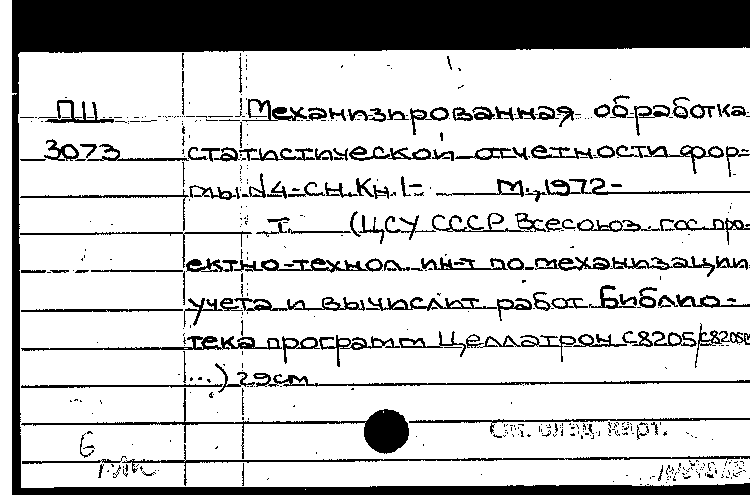 П11 Механизированная обработка
3073 статистической отчетности фор-
мы №4-сн. Кн. 1- М., 1972-
т. (ЦСУ СССР. Всесоюз. гос. про-
ектно-технол. ин-т по механизации
учета и вычислит. работ. Библио-
тека программ Целлатрон С8205/С8205
...) 29см
См. след. карт.
6